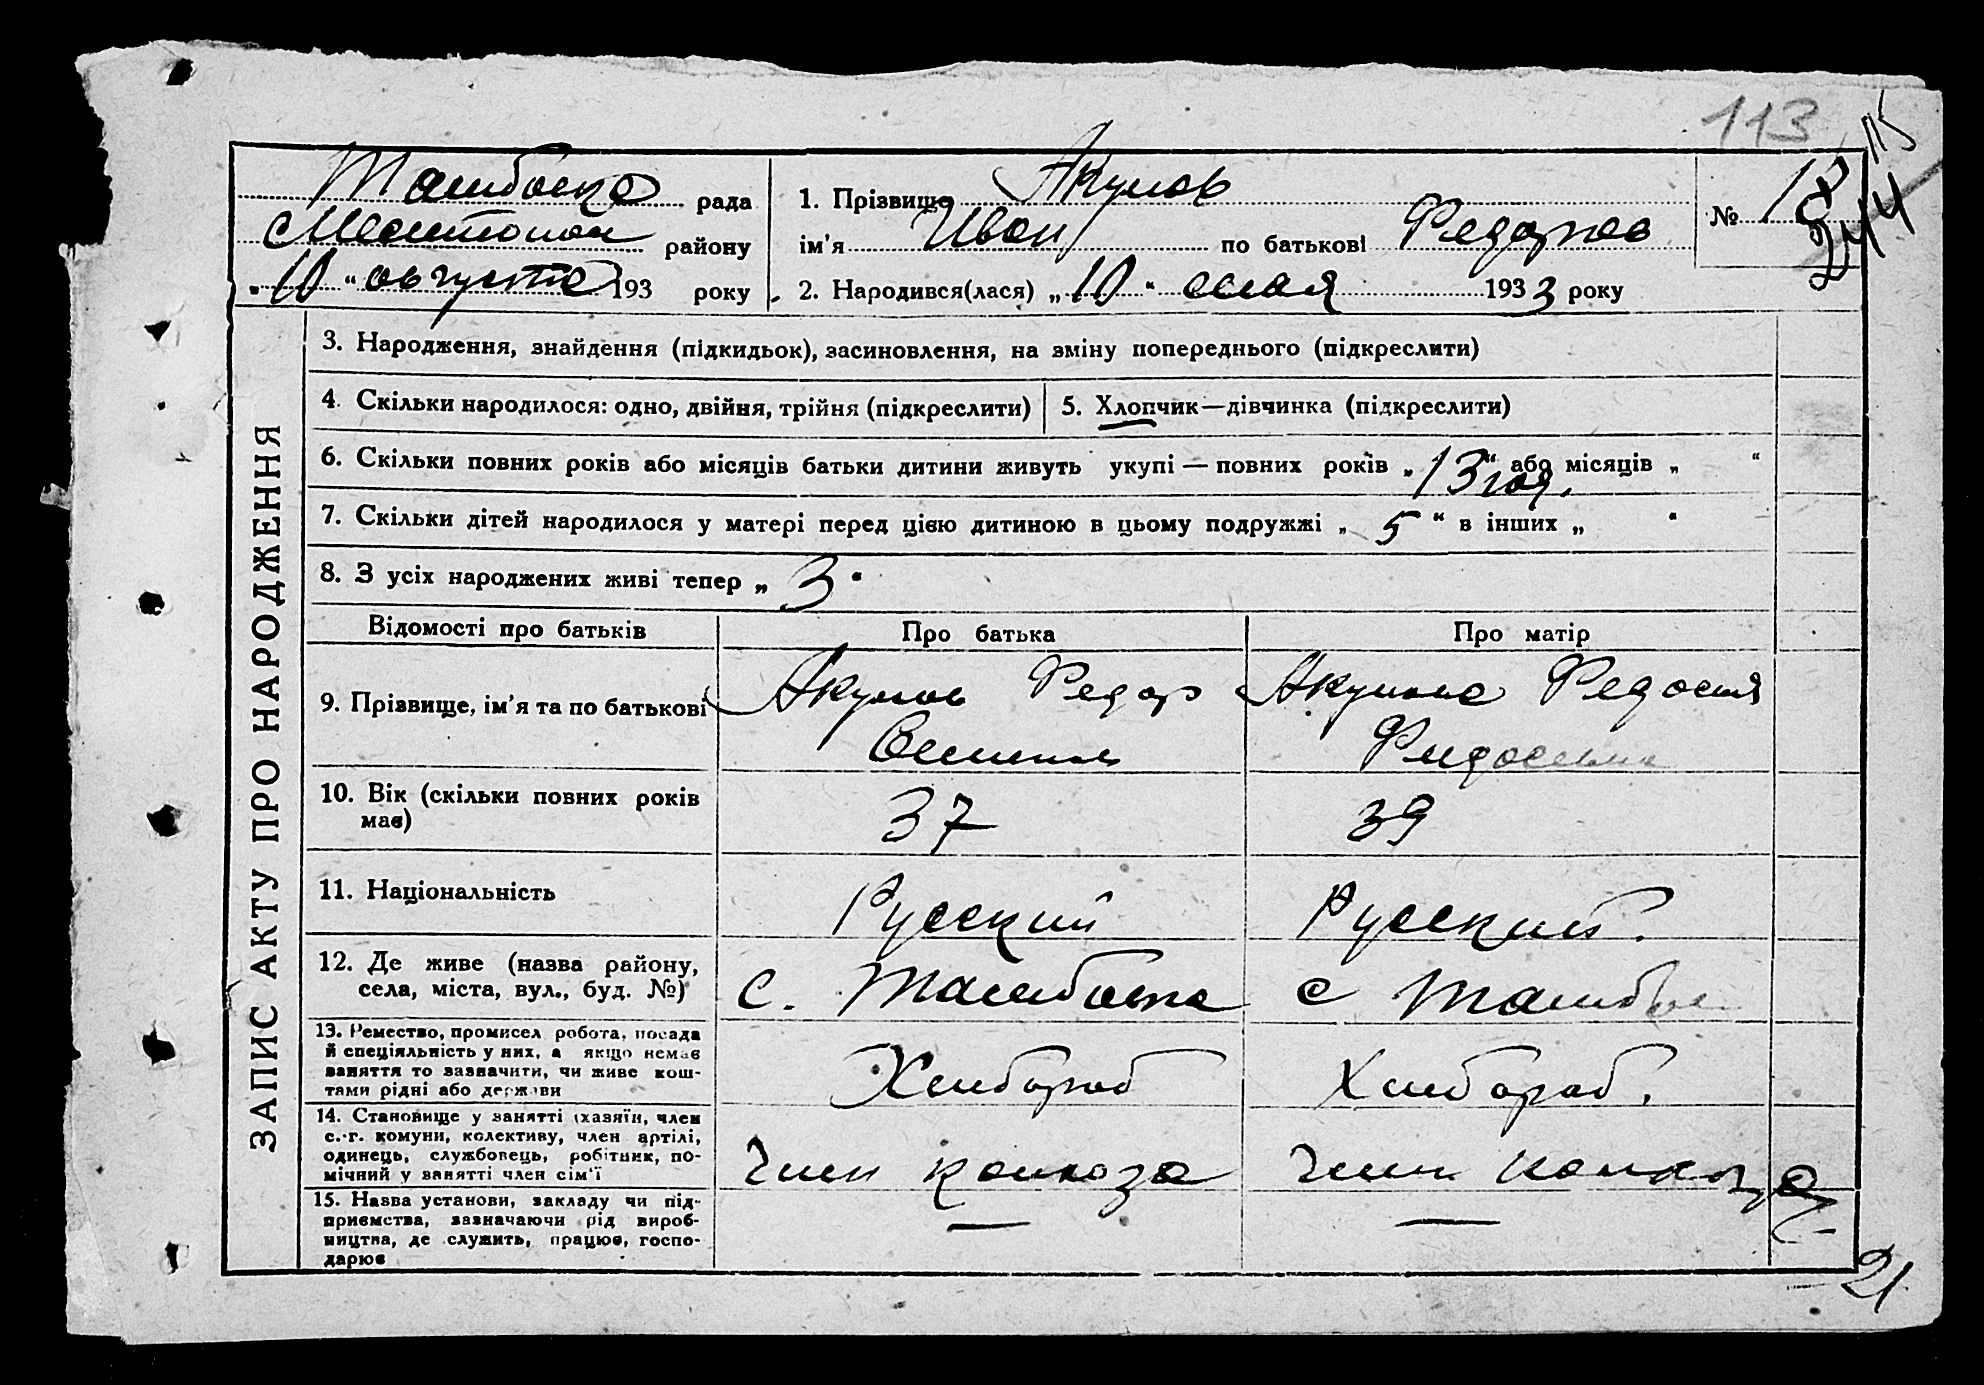 113
115
Тамбовка рада
Мелитопол району
„10“ августа 193 року
1. Прізвище Акулов
ім'я Иван по батькові Федоров
№ 18
244
2. Народився(лася) „10“ мая 1933 року
ЗАПИС АКТУ ПРО НАРОДЖЕННЯ
3. Народження, знайдення (підкидьок), засиновлення, на зміну попереднього (підкреслити)
4. Скільки народилося: одно, двійня, трійня (підкреслити)
5. Хлопчик—дівчинка (підкреслити)
6. Скільки повних років або місяців батьки дитини живуть укупі — повних років „13 год.“ або місяців „ “
7. Скільки дітей народилося у матері перед цією дитиною в цьому подружжі „ 5 “ в інших „ “
8. З усіх народжених живі тепер „ 3 “
Відомості про батьків Про батька Про матір
9. Прізвище, ім'я та по батькові
Акулов Федор
Акулова Федосия
10. Вік (скільки повних років
має)
37
39
11. Національність
Русский
Русский.
12. Де живе (назва району,
села, міста, вул., буд. №)
с. Тамбовка
с Тамбов
13. Ремество, промисел робота, посада
й спеціяльність у них, а якщо немає
заняття то зазначити, чи живе кош-
тами рідні або держави
Хлибороб
Хлибороб.
14. Становище у занятті (хазяїн, член
с.-г. комуни, колективу, член артілі,
одинець, службовець, робітник, по-
мічний у занятті член сім'ї
Член колхоза
Член колхоза
15. Назва установи, закладу чи під-
приємства, зазначаючи рід вироб-
ництва, де служить, працює, госпо-
дарює
—
—
21